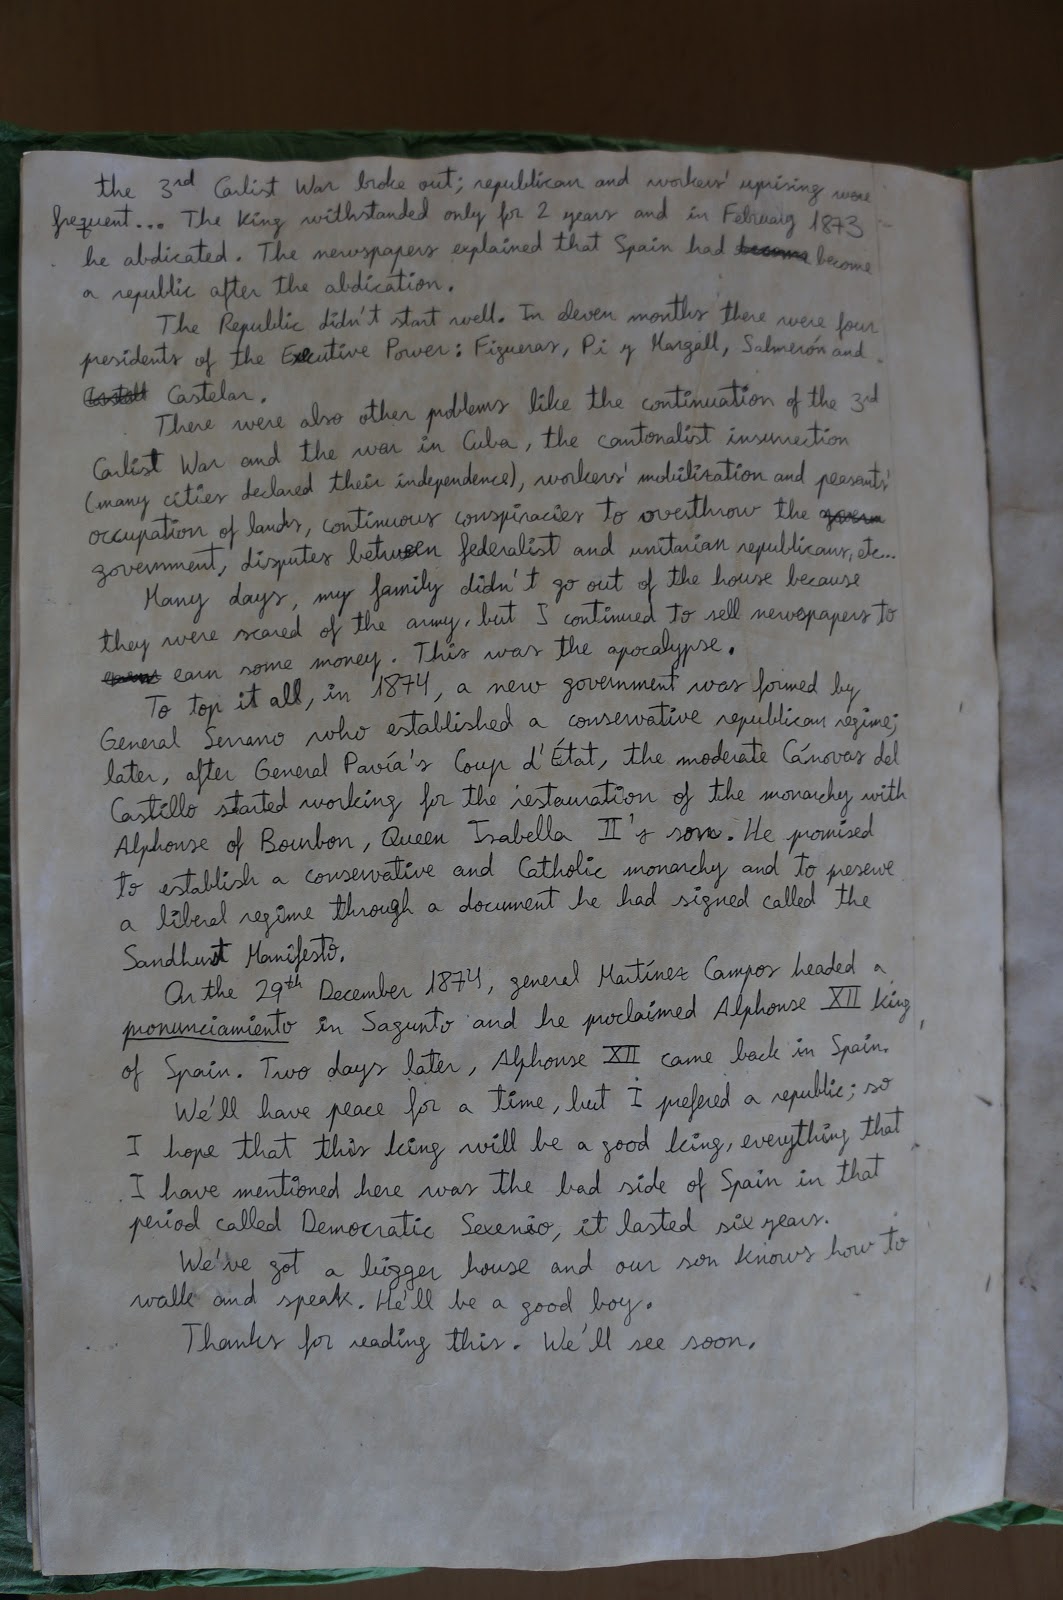 the 3rd Carlist War broke out; republican and workers' uprising were
frequent... The King withstanded only for 2 years and in February 1873
he abdicated. The newspapers explained that Spain had become
a republic after the abdication.
The Republic didn't start well. In eleven months there were four
presidents of the Executive Power: Figueras, Pi y Margall, Salmerón and
Castelar.
There were also other problems like the continuation of the 3rd
Carlist War and the war in Cuba, the cantonalist insurrection
(many cities declared their independence), workers' mobilization and peasants'
occupation of lands, continuous conspiracies to overthrow the
government, disputes between federalist and unitarian republicans, etc...
Many days, my family didn't go out of the house because
they were scared of the army, but I continued to sell newspapers to
earn some money. This was the apocalypse.
To top it all, in 1874, a new government was formed by
General Serrano who established a conservative republican regime;
later, after General Pavía's Coup d'État, the moderate Cánovas del
Castillo started working for the restauration of the monarchy with
Alphonse of Bourbon, Queen Isabella II's son. He promised
to establish a conservative and Catholic monarchy and to preserve
a liberal regime through a document he had signed called the
Sandhurst Manifesto.
On the 29th December 1874, general Martínez Campos headed a
pronunciamiento in Sagunto and he proclaimed Alphonse XII king
of Spain. Two days later, Alphonse XII came back in Spain.
We'll have peace for a time, but I prefered a republic; so
I hope that this king will be a good king, everything that
I have mentioned here was the bad side of Spain in that
period called Democratic Sexenio, it lasted six years.
We've got a bigger house and our son knows how to
walk and speak. He'll be a good boy.
Thanks for reading this. We'll see soon.